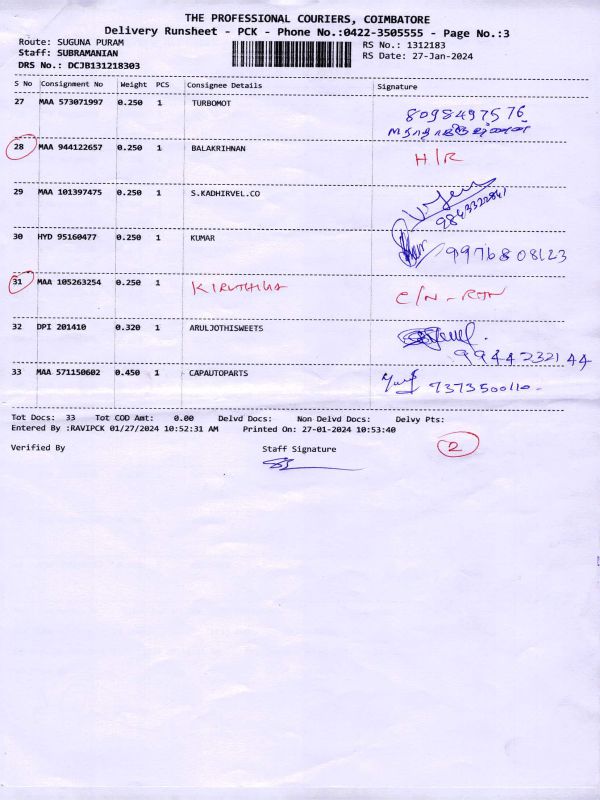 THE PROFESSIONAL COURIERS, COIMBATORE
Delivery Runsheet - PCK - Phone No.:0422-3505555 - Page No.:3
Route: SUGUNA PURAM RS No.: 1312183
Staff: SUBRAMANIAN RS Date: 27-Jan-2024
DRS No.: DCJB131218303
S No Consignment No Weight PCS Consignee Details Signature
27 MAA 573071997 0.250 1 TURBOMOT 8098497576
28 MAA 944122657 0.250 1 BALAKRIHNAN H/R
29 MAA 101397475 0.250 1 S.KADHIRVEL.CO 9843322841
30 HYD 95160477 0.250 1 KUMAR 9976808123
31 MAA 105263254 0.250 1 KIRUTHIKA C/N - RTN
32 DPI 201410 0.320 1 ARULJOTHISWEETS 9944232144
33 MAA 571150602 0.450 1 CAPAUTOPARTS 7373500110-
Tot Docs: 33 Tot COD Amt: 0.00 Delvd Docs: Non Delvd Docs: Delvy Pts:
Entered By :RAVIPCK 01/27/2024 10:52:31 AM Printed On: 27-01-2024 10:53:40
2
Verified By Staff Signature